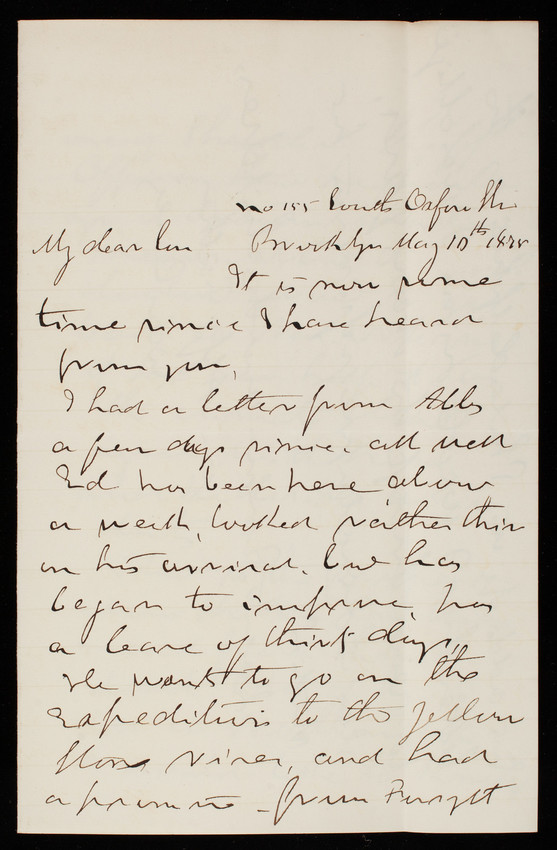 No 155 South Oxford St
My dear Brooklyn May 10th 187
It is now some
time since I have heard
from you,
I had a letter from Abby
a few days since. all well
Ed has been here about
a week, looked rather thin
on his arrival, but has
began to improve, has
a leave of thirty days,
He wants to go on the
Expedition to the Yellow
Stone river, and had
a promise - from Forsyth